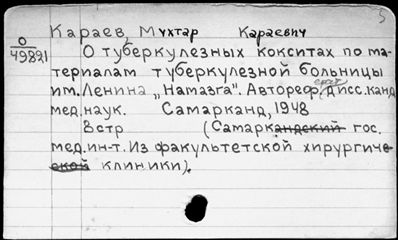 5
Караев, Мухтар Караевич
О
49821
О туберкулезных кокситах по ма-
териалам туберкулезной больницы
им. Ленина „Намазга". Автореф. дисс. канд.
мед. наук. Самарканд, 1948
8 стр (Самаркандский гос.
мед. ин-т. Из факультетской хирургиче-
ской клиники).